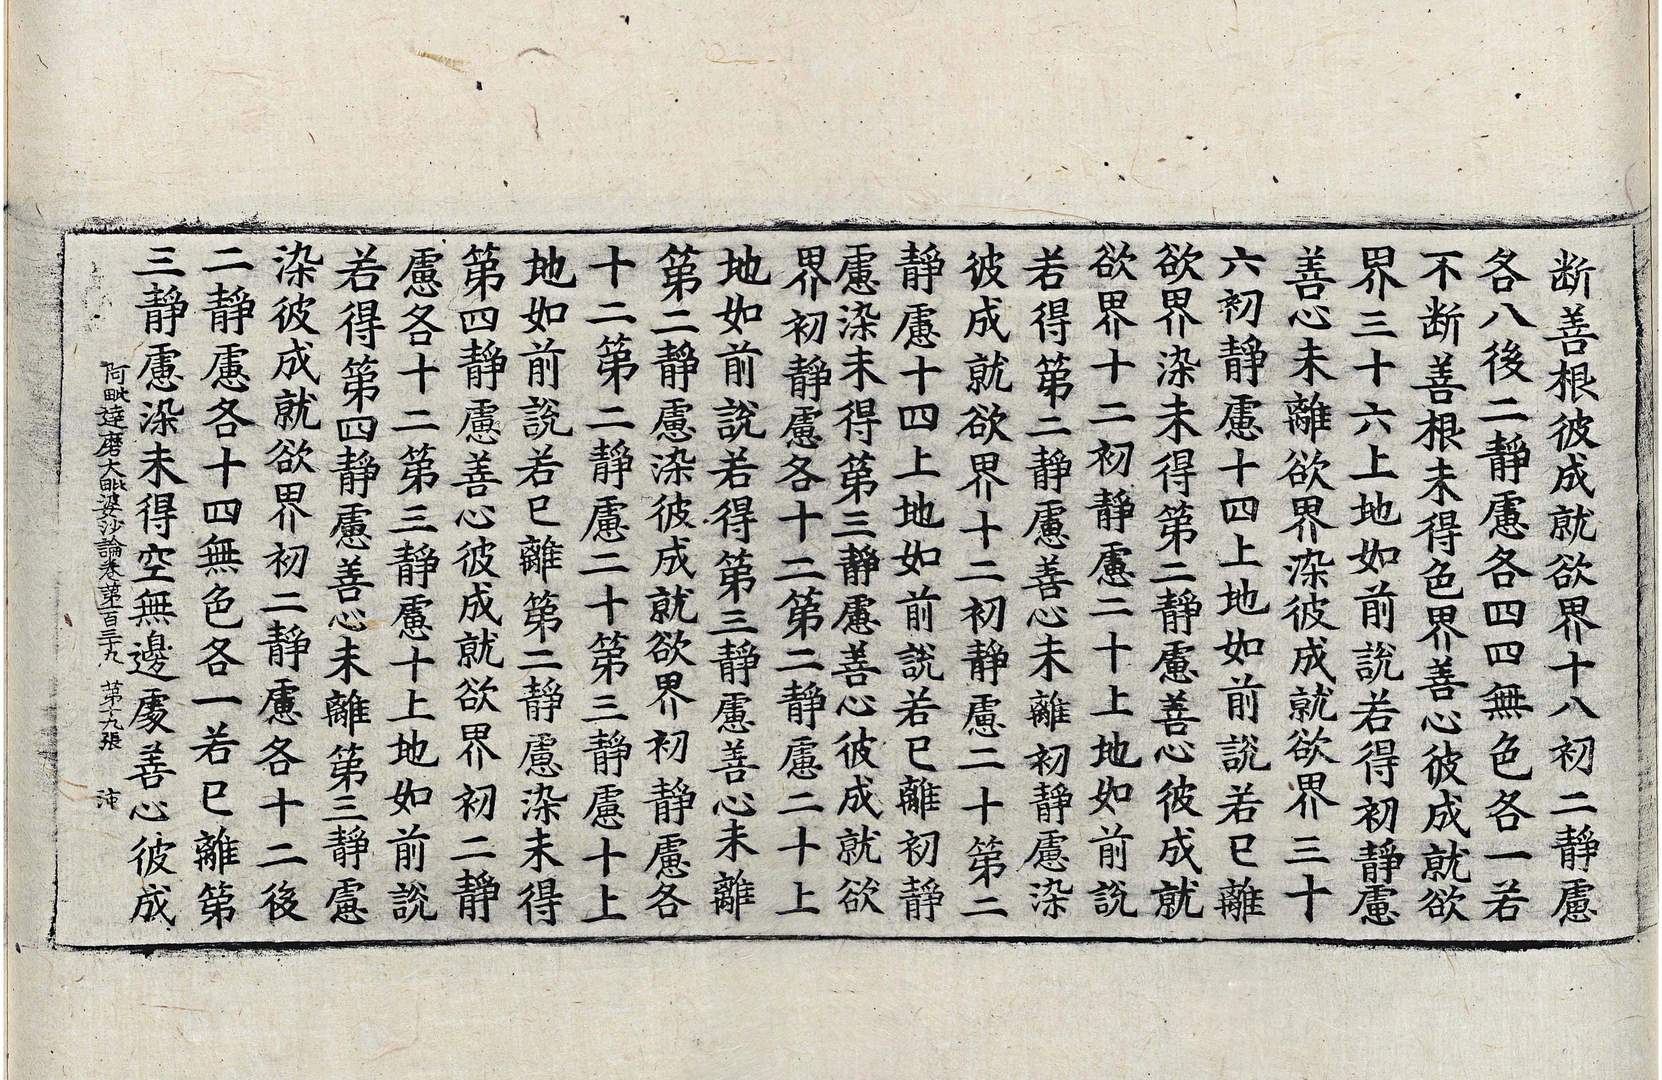 断善根彼成就欲界十八初二静慮
各八後二静慮各四四無色各一若
不断善根未得色界善心彼成就欲
界三十六上地如前説若得初静慮
善心未離欲界染彼成就欲界三十
六初静慮十四上地如前説若已離
欲界染未得第二静慮善心彼成就
欲界十二初静慮二十上地如前説
若得第二静慮善心未離初静慮染
彼成就欲界十二初静慮二十第二
静慮十四上地如前説若已離初静
慮染未得第三静慮善心彼成就欲
界初静慮各十二第二静慮二十上
地如前説若得第三静慮善心未離
第二静慮染彼成就欲界初静慮各
十二第二静慮二十第三静慮十上
地如前説若已離第二静慮染未得
第四静慮善心彼成就欲界初二静
慮各十二第三静慮十上地如前説
若得第四静慮善心未離第三静慮
染彼成就欲界初二静慮各十二後
二静慮各十四無色各一若已離第
三静慮染未得空無邊處善心彼成
阿毗達磨大毗婆沙論卷第百三十九 第十九張